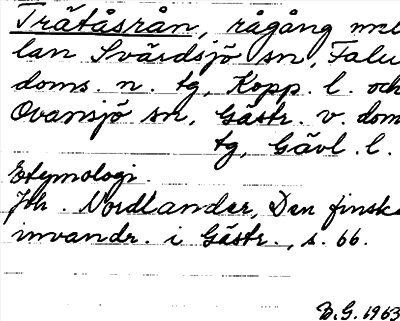 Trätåsrån, rågång mel
lan Svärdsjö sn, Falu
doms. n. tg, Kopp. l. och
Ovansjö sn, Gästr. v. dom
tg, Gävl. l.
Etymologi.
Joh. Nordlander, Den finska
invandr. i Gästr., s. 66.
B.G. 1963